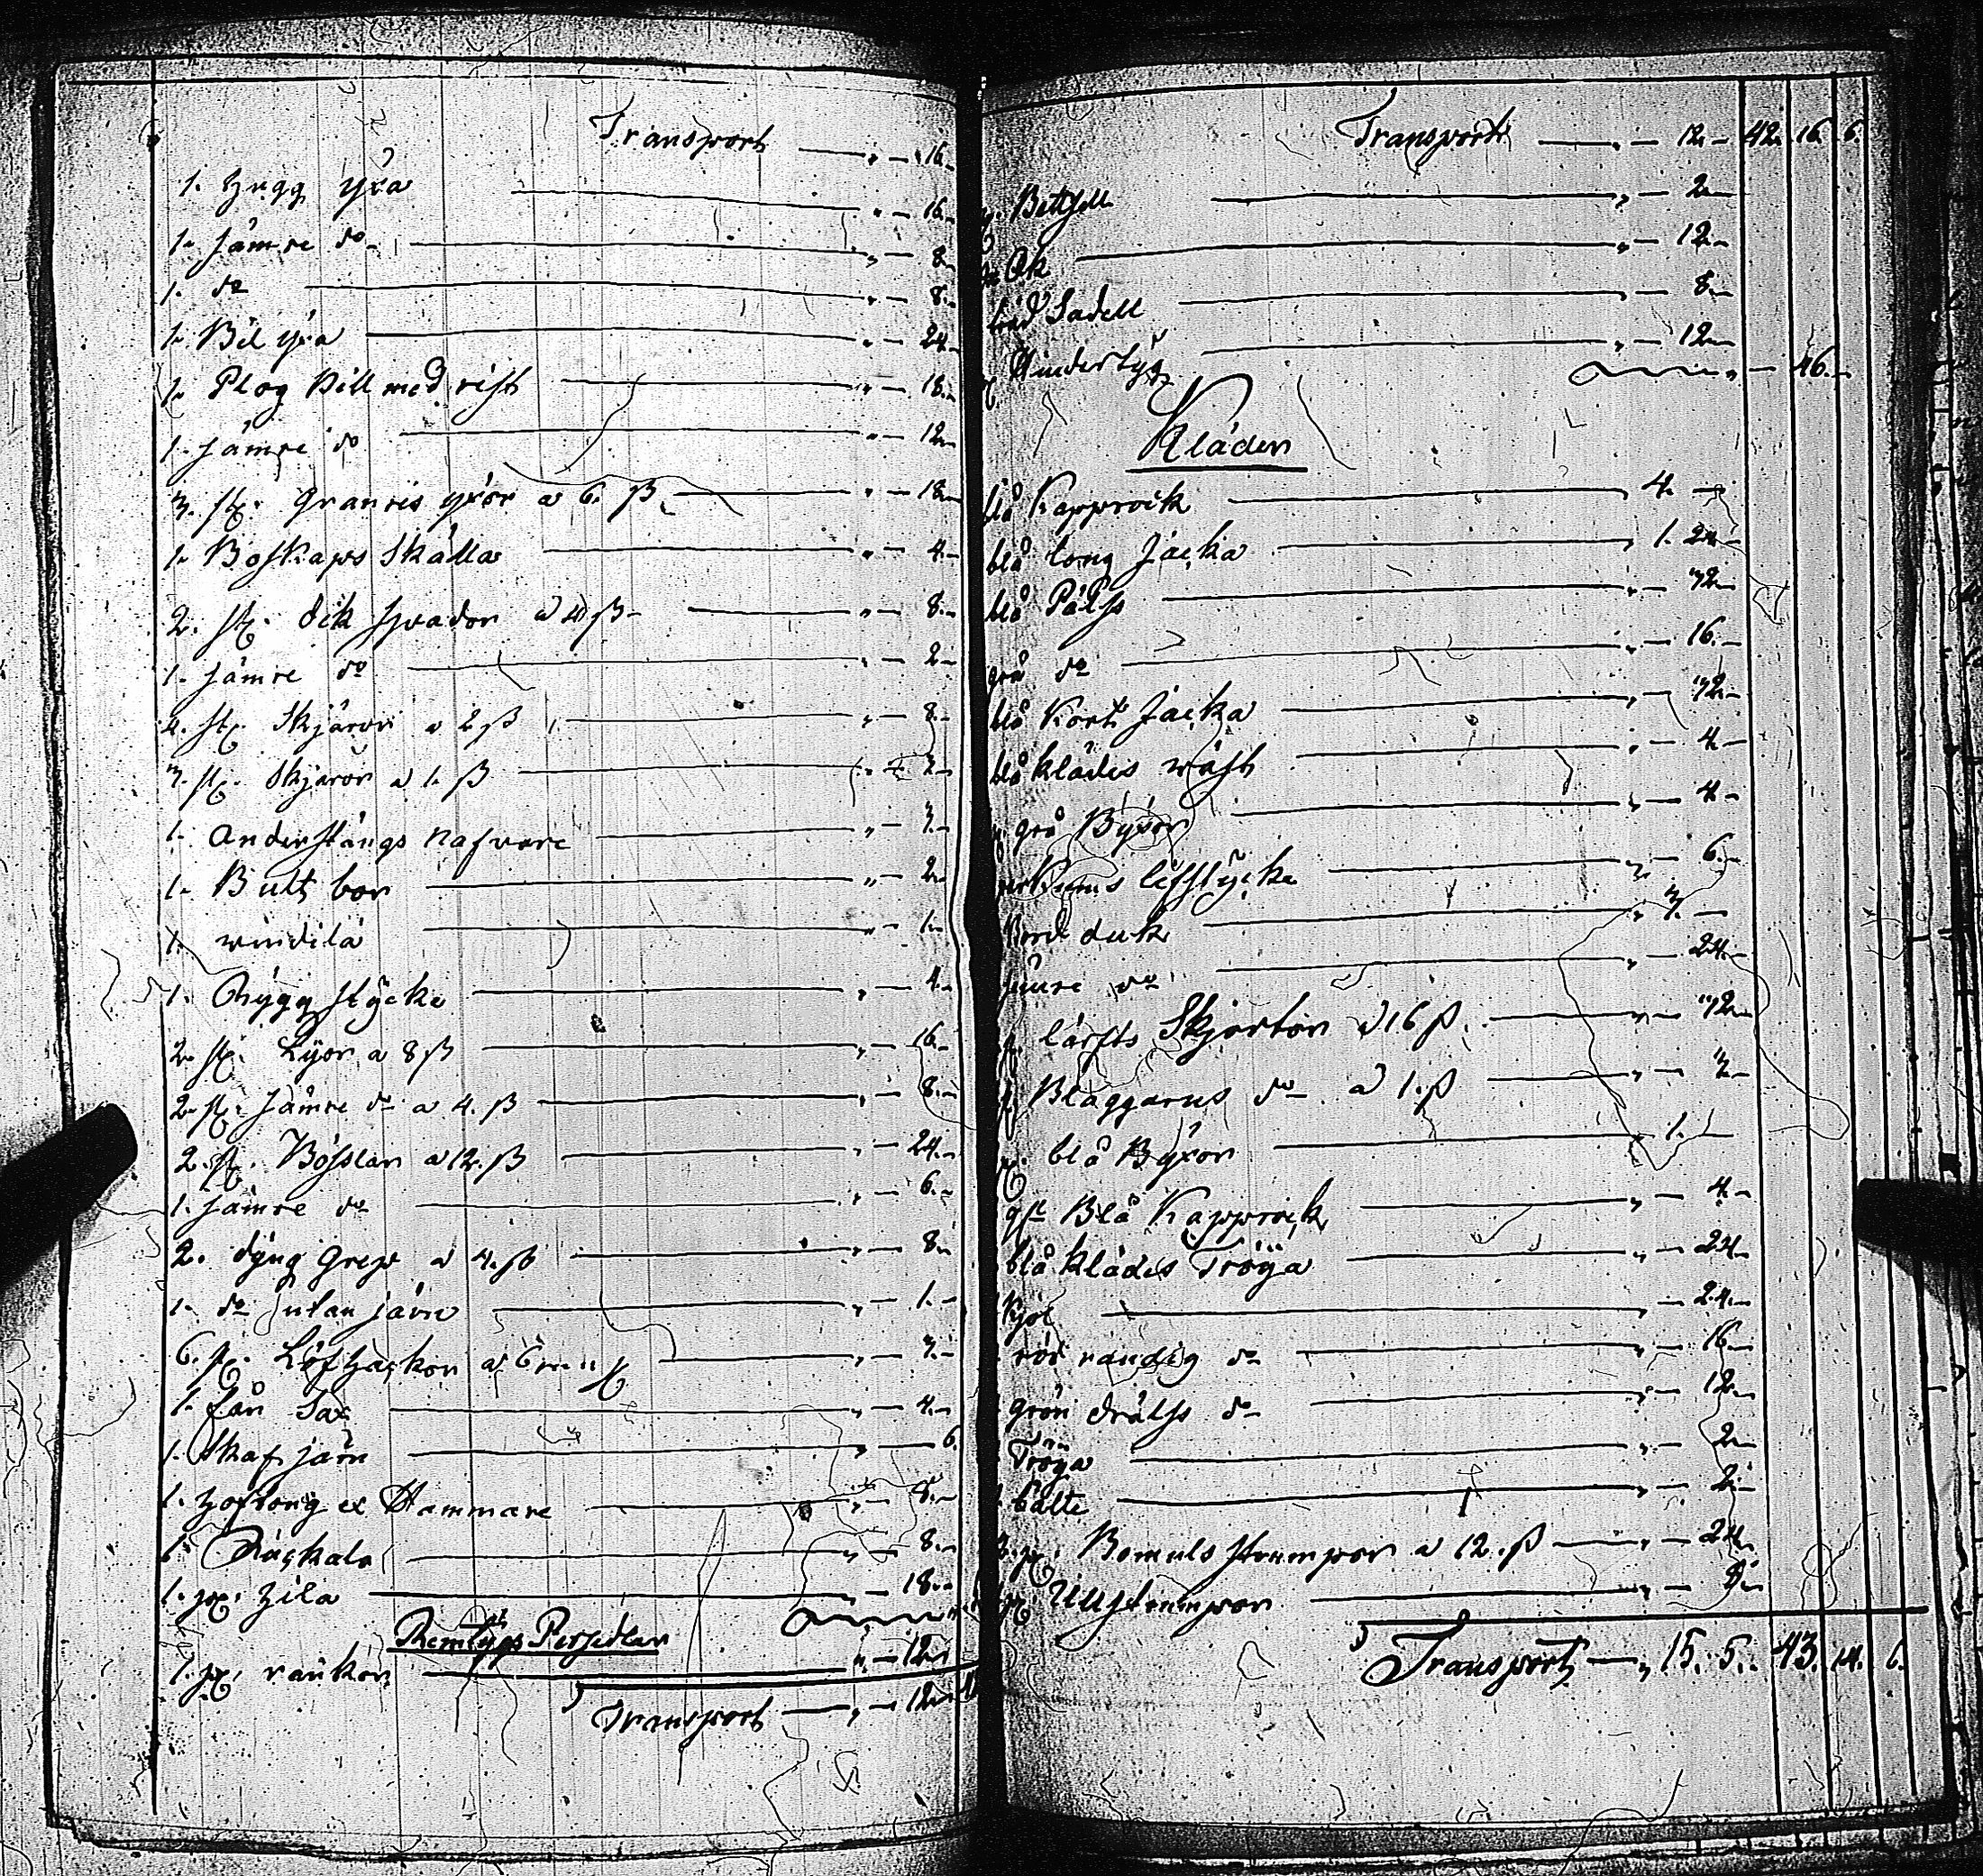 Transport — " — 16.
1. Hugg yxa — " — 16.
1. sämre do — " — 8.
1. do — " — 8.
1. Bil yxa — " — 24.
1. Plog bill med rist — " — 18.
1. sämre do — " — 12.
3. st. Granris yxor a 6. ß. — " — 18.
1. Boskaps Skälla — " — 4.
2. st. dik spador a 4 ß — " — 8.
1. sämre do — " — 2.
4. st. Skjäror a 2 ß — " — 8.
3. st. Skjäror a 1. ß — " — 3.
1. Anderstångs Nafvare — " — 3.
1. Bult bor — " — 2.
1. — " — 1.
1. Rygg stycke — " — 4.
2. st. Lijor a 8 ß — " — 16.
2. st. sämre do a 4. ß — " — 8.
2. st. Bösslor a 12. ß — " — 24.
1. sämre do — " — 6.
2. dyng Grep a 4. ß — " — 8.
1. do utan järn — " — 1.
6. st. Löfhackor a 6 — " — 3.
1. får Sax — " — 4.
1. Skaf järn — " — 6.
1. Hoftong et Hammare — " — 8.
1. — " — 8.
1. pr. — " — 18.
Remtygs Persedlar
1. pr. rankor — " — 12.
Transport — " — 12.
Transport — " — 12. 42. 16. 6.
Bettsell — " — 2.
Ok — " — 12.
Sadell — " — 8.
— " — 12.
" — 46.
Kläder
blå Kapprock — 4. —
blå long Jacka — " 1. 24.
blå Päls — " — 32.
grå do — " — 16.
blå Kort Jacka — " — 32.
blå klädes wäst — " — 4.
grå Byxor — " — 4.
lifstycke — " — 6.
Bord duk — " 3. —
sämre do — " — 24.
lärfts Skjortor a 16 ß. — " — 32.
Blaggarns do a 1. ß — " — 3.
blå Byxor — " 1. —
Blå Kapprock — " — 4.
blå klädes Tröya — " — 24.
Kjol — " — 24.
röd randig do — " — 16.
grön drälls do — " — 12.
Tröya — " — 2.
bälte — " — 2.
Bomuls strumpor a 12. ß — " — 24.
Ullstrumpor — " — 8.
Transport — " 15. 5. 43. 14. 6.